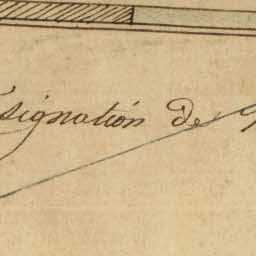 signatión de